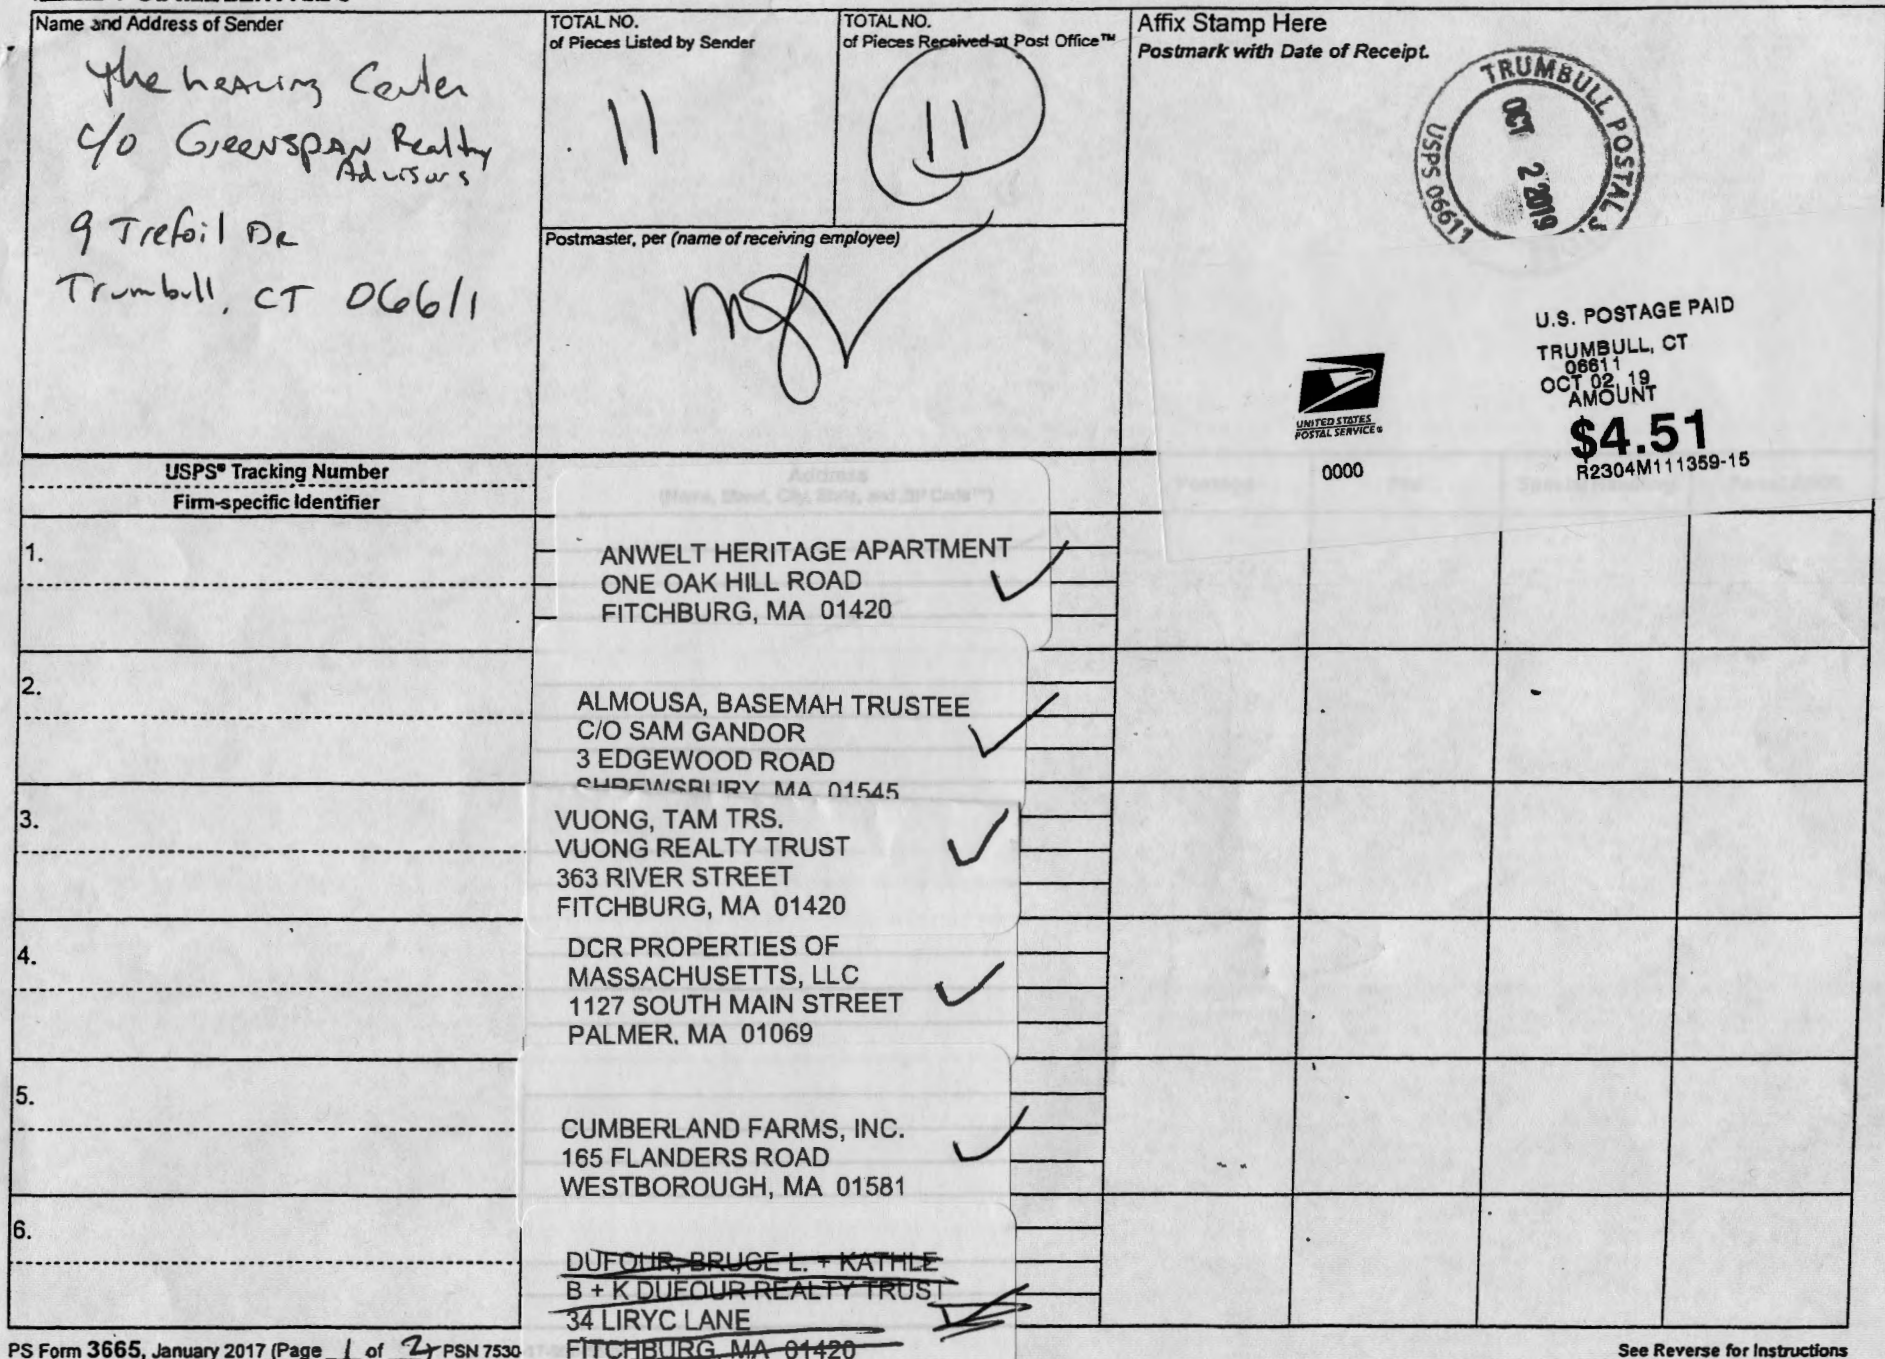 Name and Address of Sender
The Healing Center
C/O Greenspan Realty
Advisors
9 Trefoil Dr
Trumbull, CT 06611
TOTAL NO.
of Pieces Listed by Sender
11
TOTAL NO.
of Pieces Received at Post Office™
11
Postmaster, per (name of receiving employee)
Affix Stamp Here
Postmark with Date of Receipt.
TRUMBULL POSTAL
OCT 2 2019
USPS 06611
U.S. POSTAGE PAID
TRUMBULL, CT
06611
OCT 02, 19
AMOUNT
$4.51
R2304M111359-15
UNITED STATES
POSTAL SERVICE®
0000
USPS® Tracking Number
Firm-specific Identifier
Address
(Name, Street, City, State, and ZIP Code™)
Postage
Fee
Special Handling
1.
ANWELT HERITAGE APARTMENT
ONE OAK HILL ROAD
FITCHBURG, MA 01420
2.
ALMOUSA, BASEMAH TRUSTEE
C/O SAM GANDOR
3 EDGEWOOD ROAD
SHREWSBURY, MA 01545
3.
VUONG, TAM TRS.
VUONG REALTY TRUST
363 RIVER STREET
FITCHBURG, MA 01420
4.
DCR PROPERTIES OF
MASSACHUSETTS, LLC
1127 SOUTH MAIN STREET
PALMER, MA 01069
5.
CUMBERLAND FARMS, INC.
165 FLANDERS ROAD
WESTBOROUGH, MA 01581
6.
DUFOUR, BRUCE L. + KATHLE
B + K DUFOUR REALTY TRUST
34 LIRYC LANE
FITCHBURG, MA 01420
PS Form 3665, January 2017 (Page 1 of 2) PSN 7530
See Reverse for Instructions